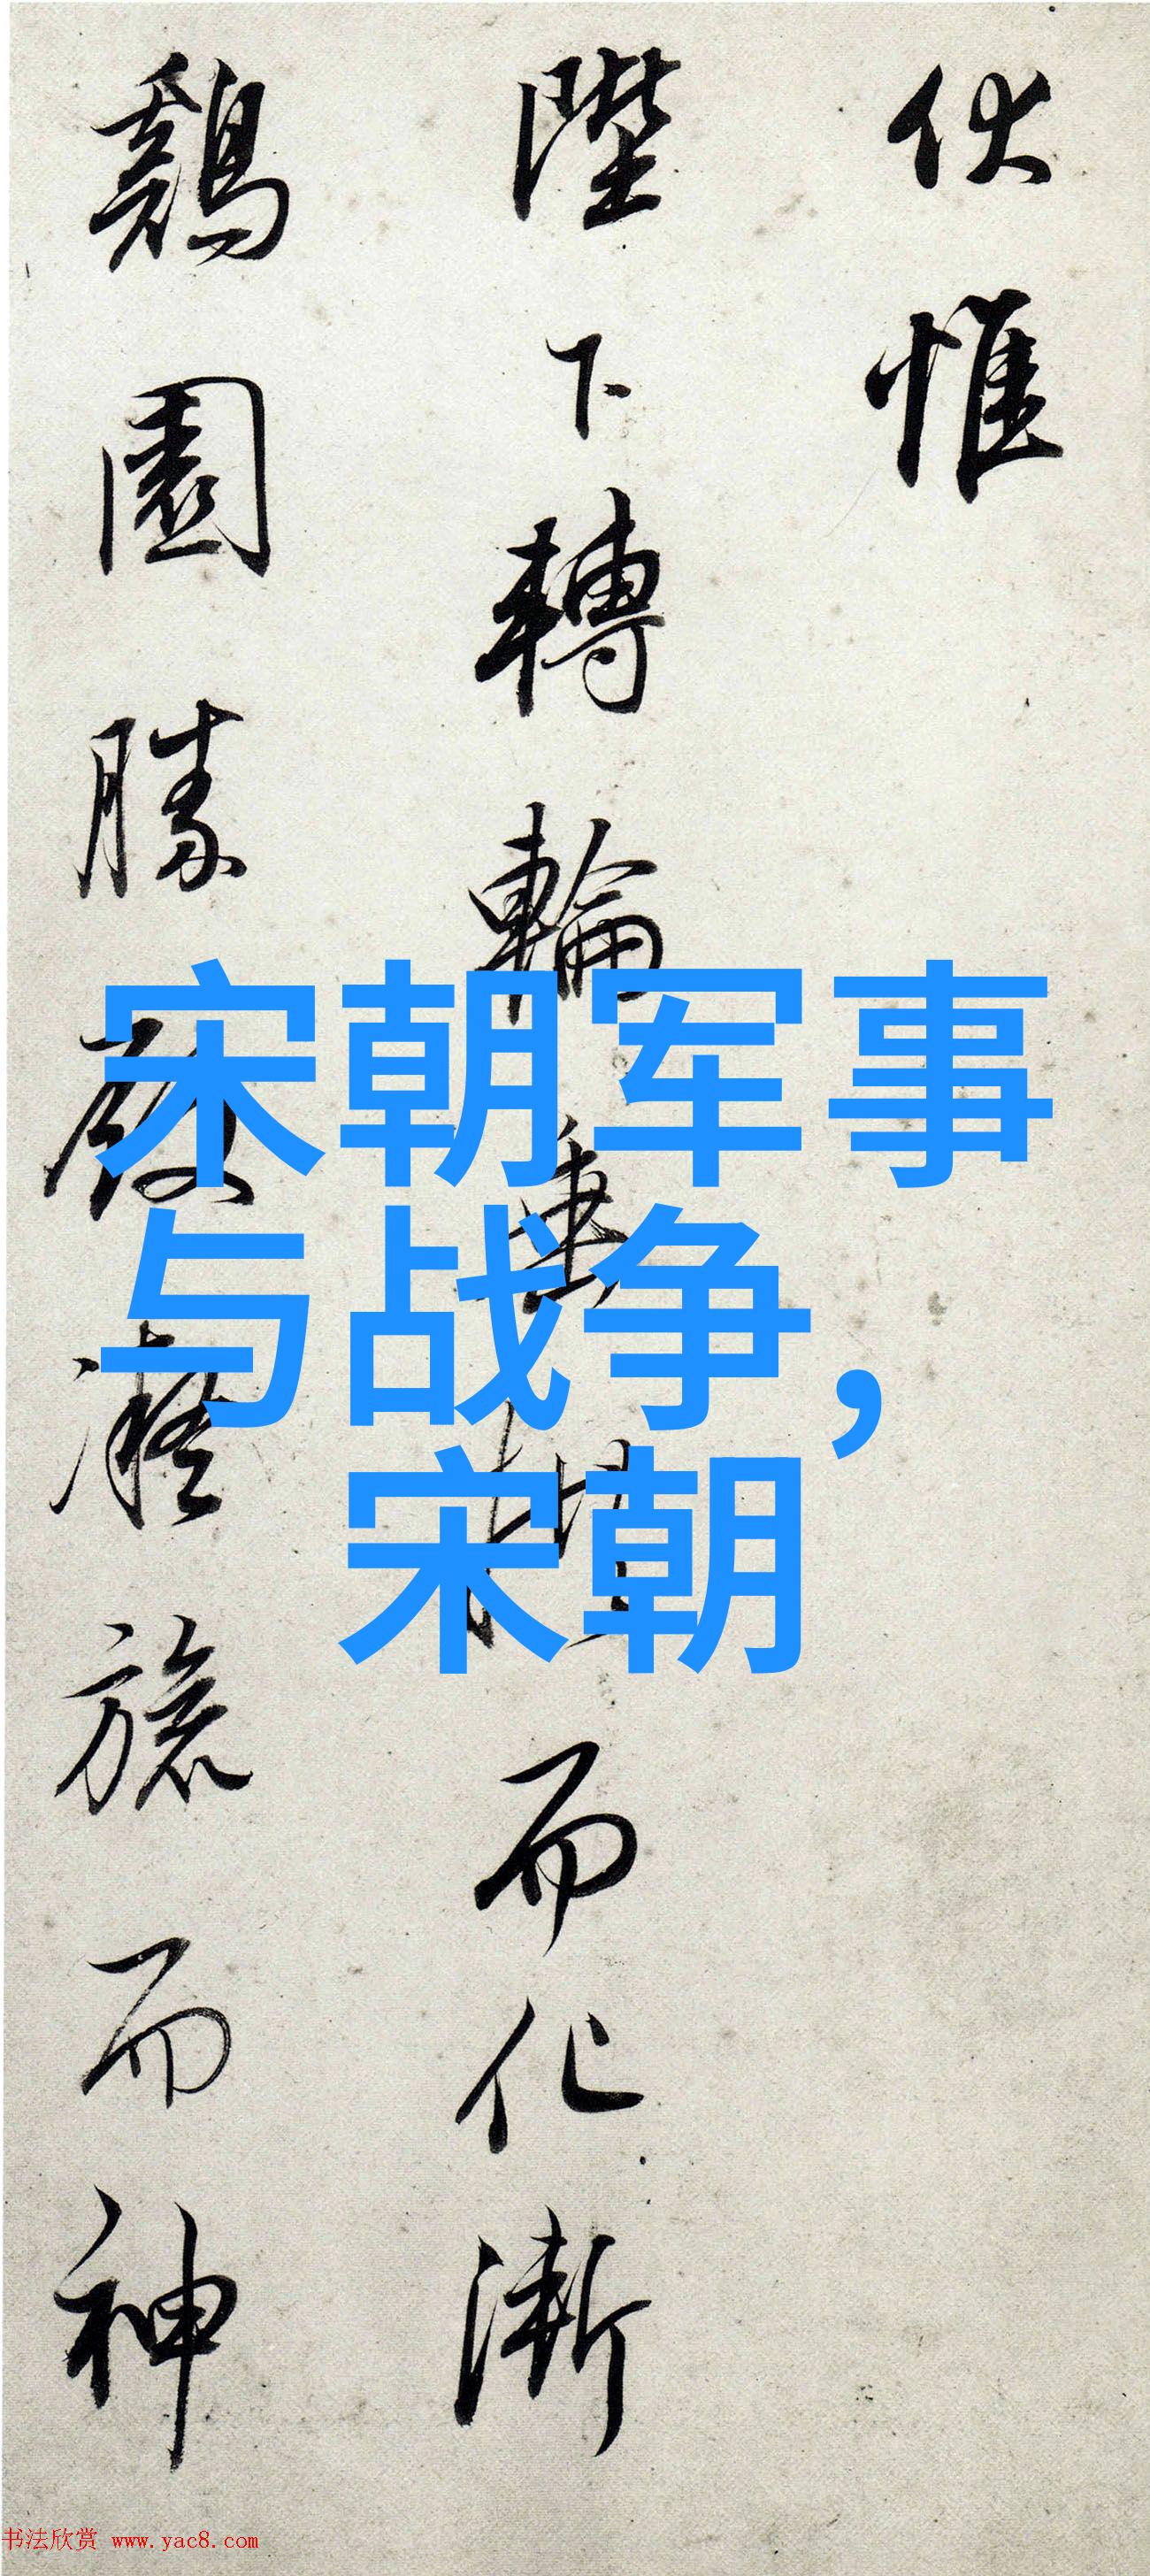 伏惟
陛下轉輪垂拱而化漸
鷄園勝殿凝旒而神
宋朝军事
与战争，
宋朝
书法欣赏 www.yac8.com